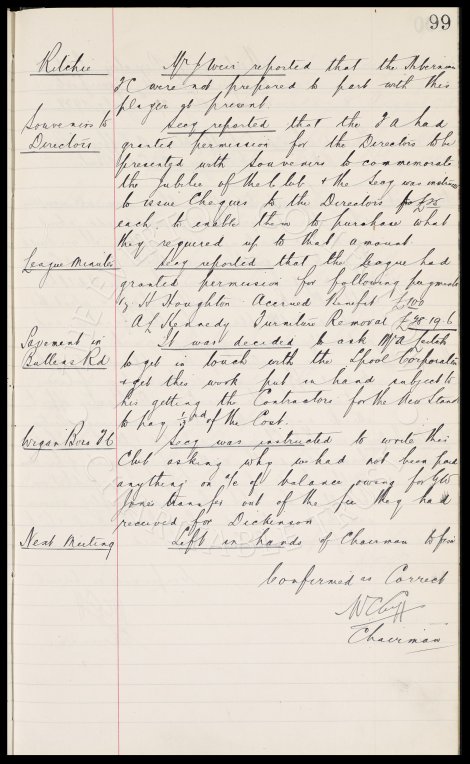 99
Ritchie Mr J Weir reported that the Hibernian
FC were not prepared to part with this
player at present.
Souvenirs to Secy reported that the F A had
Directors granted permission for the Directors to be
presented with souvenirs to commemorate
the Jubilee of the Club & the Secy was instructed
to issue Cheques to the Directors for £25
each to enable them to purchase what
they required up to that amount
League Minutes Secy reported that the League had
granted permission for following payments
H Houghton Accrued Benefit £100
A L Kennedy Furniture Removal £28.19.6
Pavement in It was decided to ask Mr A
Bullens Rd to get in touch with the Lpool Corporation
& get this work put in hand subject to
his getting the Contractors for the New Stand
to pay of the Cost.
Wigan Boro FC Secy was instructed to write this
Club asking why we had not been paid
anything on a/c of balance owing for GW
Jones transfer out of the fee they had
received for Dickenson
Next Meeting Left in hands of Chairman to fix
Confirmed as Correct
W C Cuff
Chairman